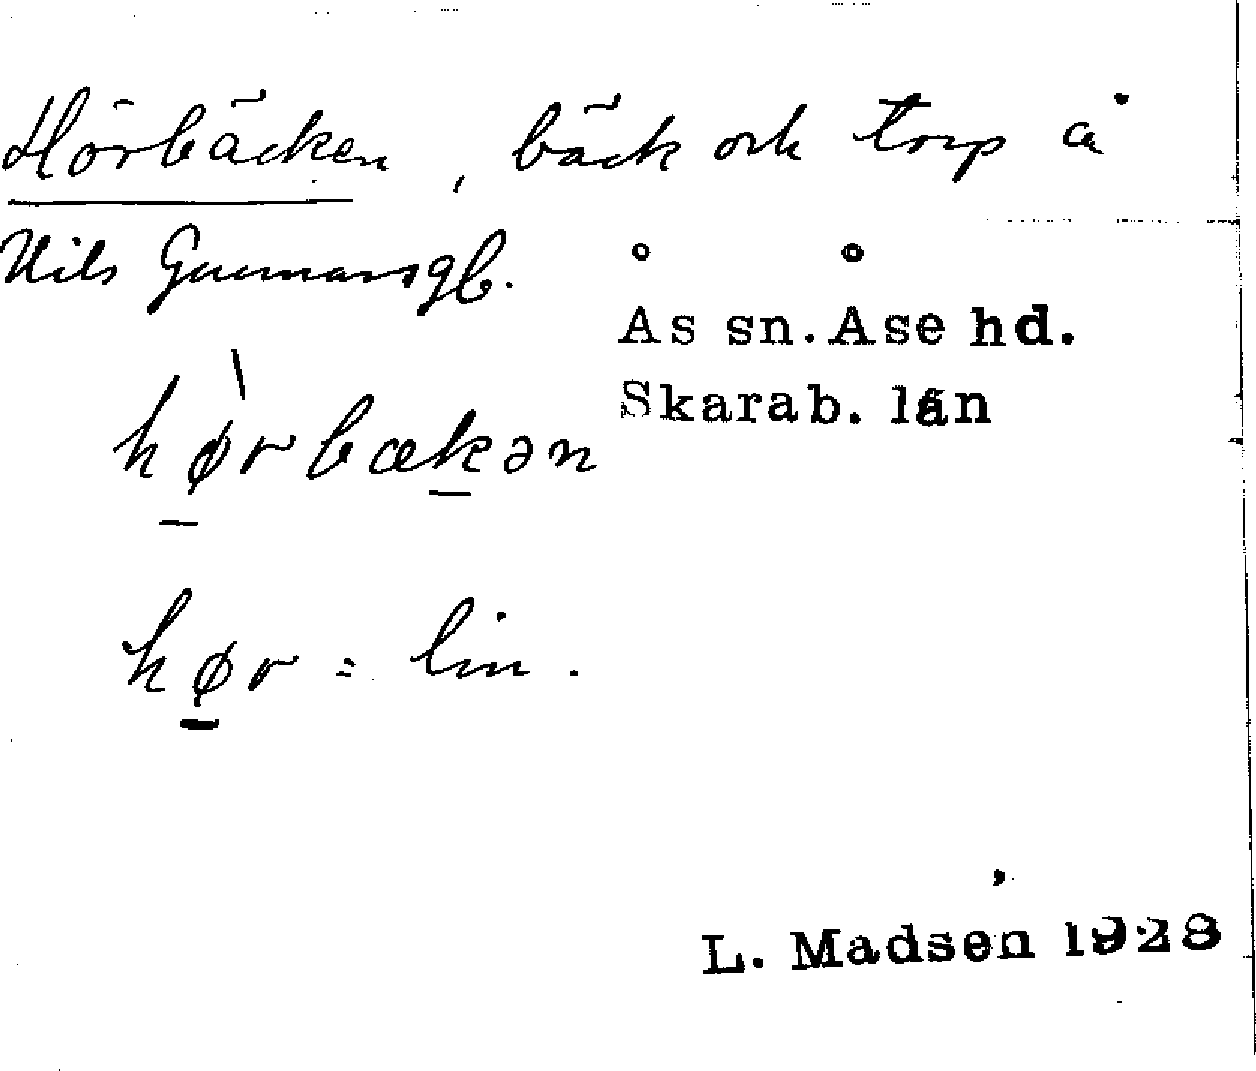 Hörbäcken, bäck och torp å
Nils Gunnarsgb.
Ås sn. Åse hd.
Skarab. län
hø̠̀rbæk̠ən
hø̠r = lin.
L. Madsen 1928